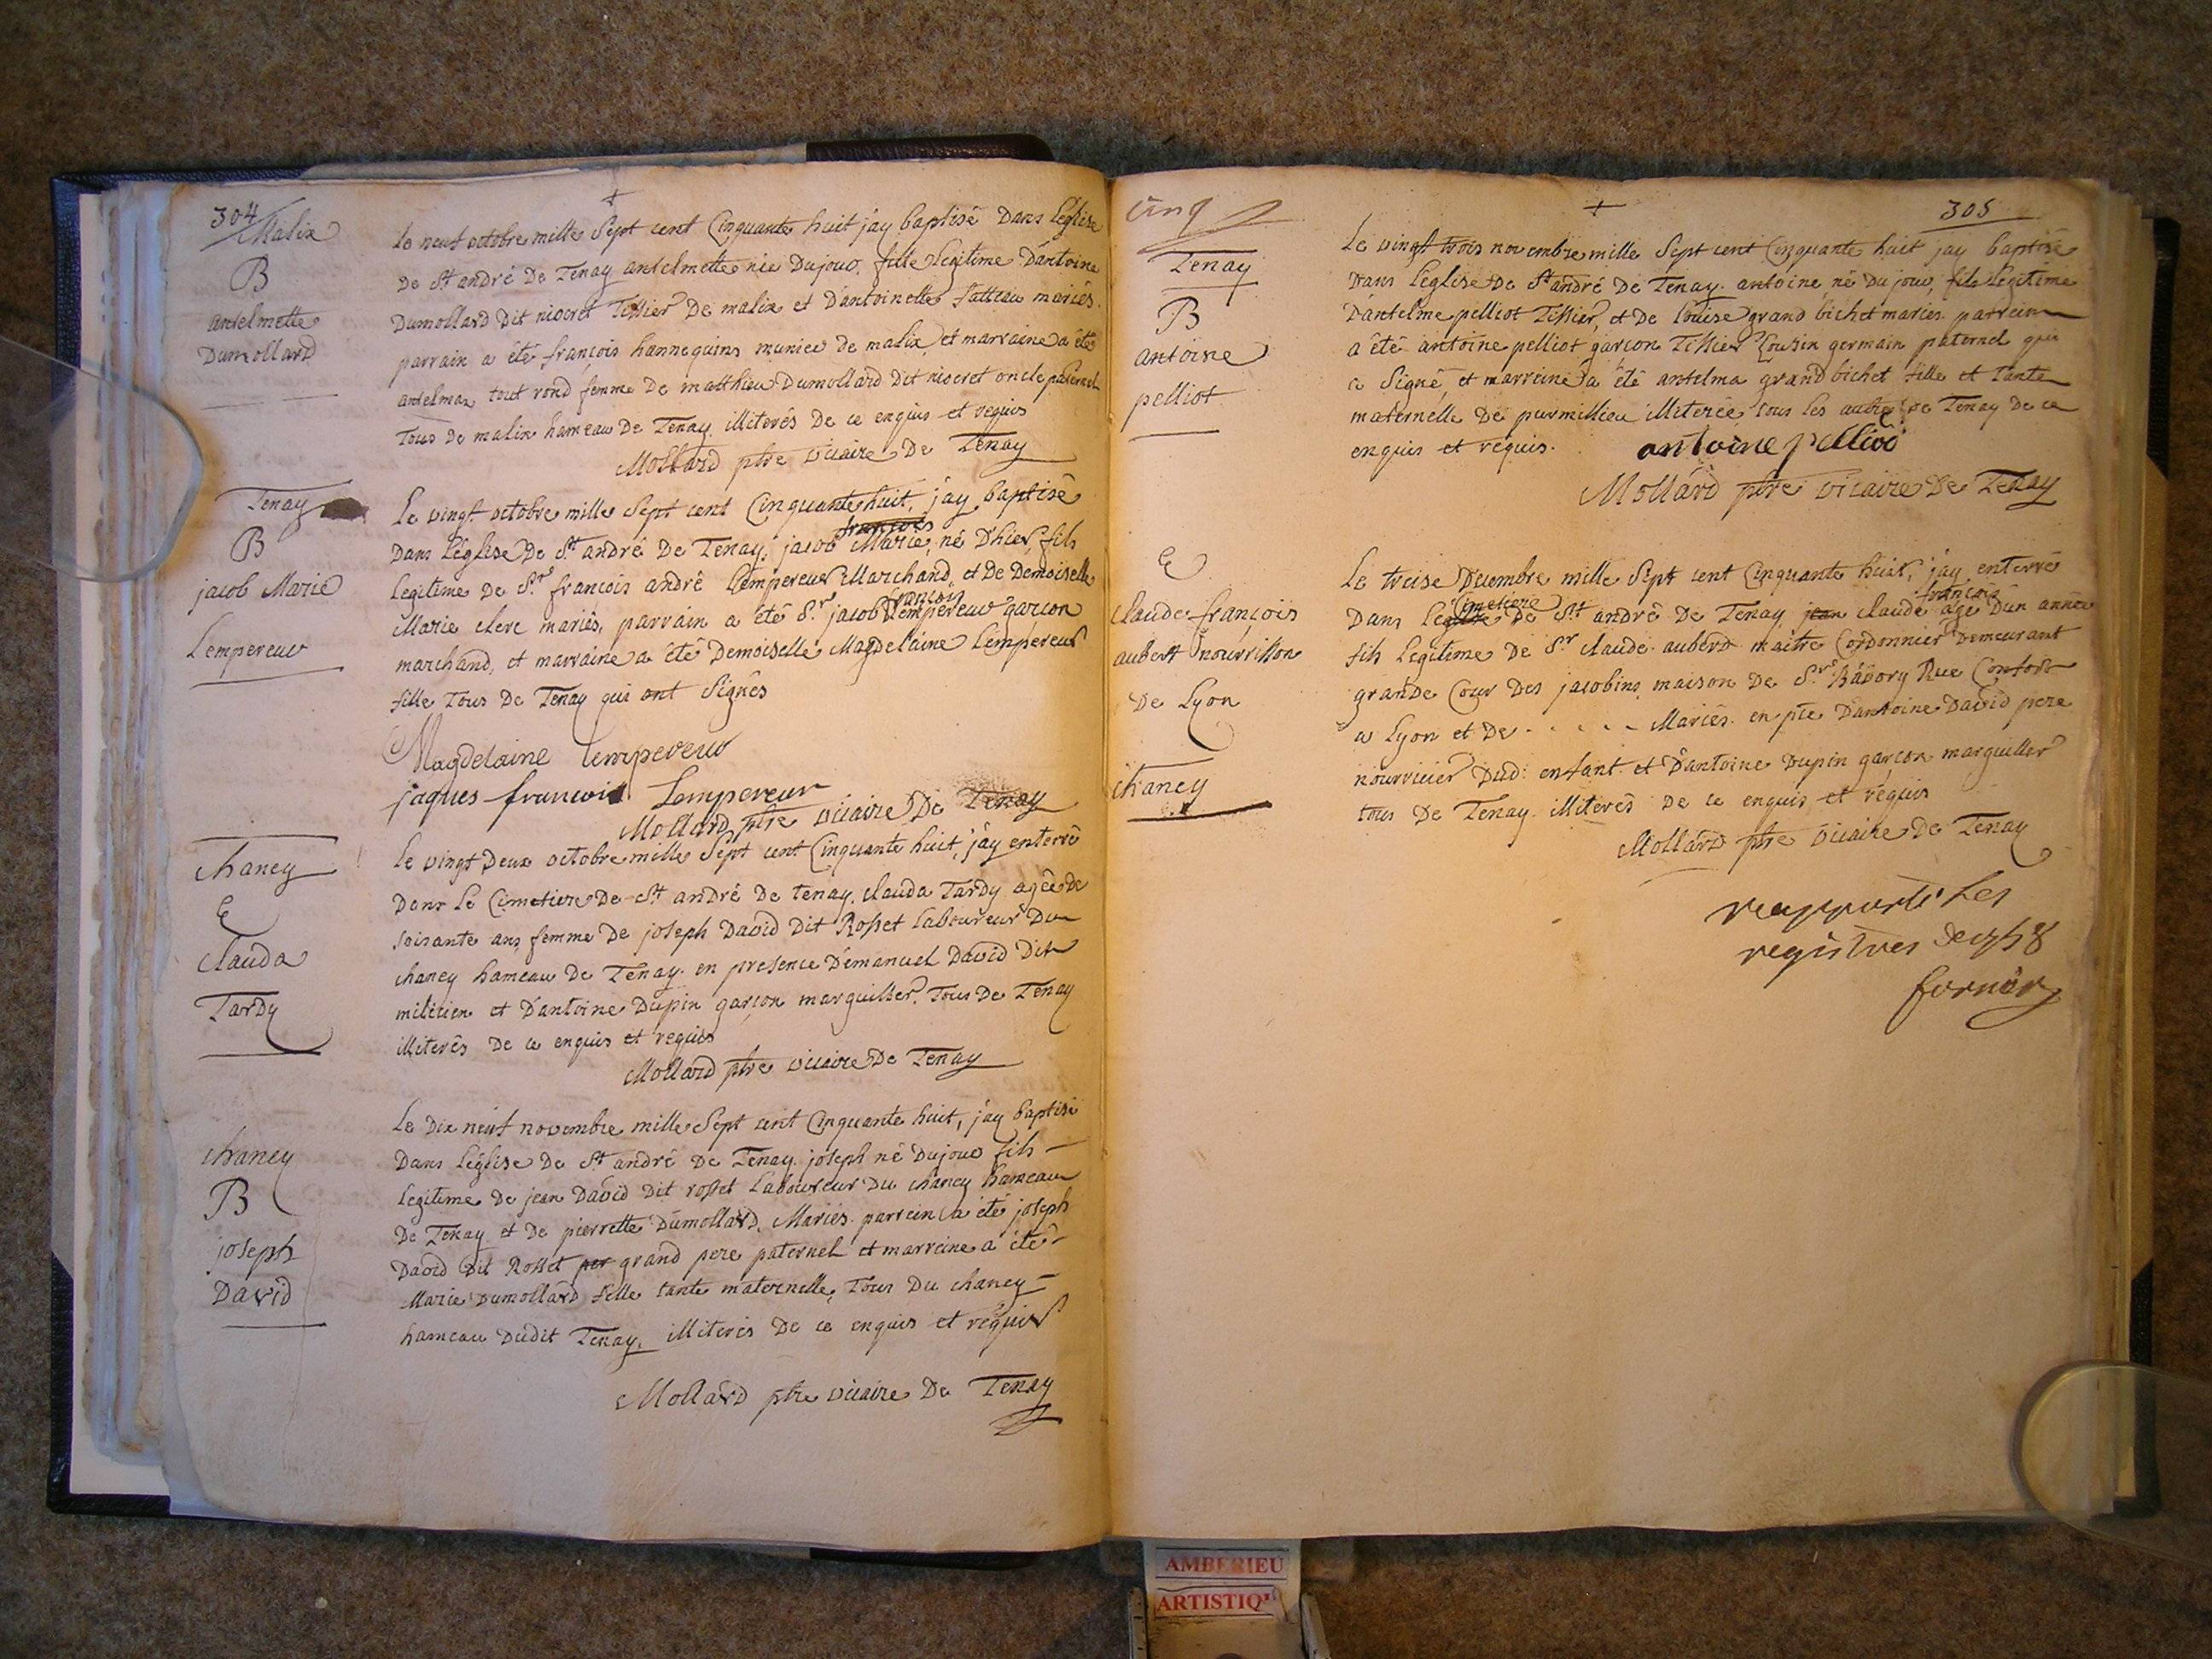 304
Malix
B
antelmette
Dumollard
Le neuf octobre mille Sept cent Cinquante huit j'ay baptisé Dans L'église
De St andré De Tenay antelmette née Dujour, fille Legitime D'antoine
Dumollard Dit niocret Tissier De malix et D'antoinette mariés.
parrain a été françois hannequins munier de malix, et marraine a été
antelma tout rond femme De matthieu Dumollard Dit niocret oncle paternel
Tous De malix hameau De Tenay illiterés De ce enquis et requis
Mollard ptre vicaire De Tenay
Tenay
B
jacob Marie
Lempereur
Le vingt octobre mille Sept cent Cinquante huit, j'ay baptisé
françois
Dans L'église De St andré De Tenay, jacob Marie, né D'hier, fils
Legitime De Sr. françois andré Lempereur Marchand, et De Demoiselle
françois
Marie clerc mariés, parrain a été Sr. jacob Lempereur garcon
marchand, et marraine a été Demoiselle Magdelaine Lempereur
fille Tous De Tenay qui ont Signés
Magdelaine Lempereur
jaques francois Lempereur
Mollard ptre vicaire De Tenay
Chaney
E
Clauda
Tardy
Le vingt Deux octobre mille Sept cent Cinquante huit, j'ay enterré
Dans Le Cimetiere De St andré De tenay, clauda Tardy agée De
soixante ans femme De joseph David Dit Rosset Laboureur Du
chaney hameau De Tenay. en presence D'emanuel David Dit
militien et D'antoine Dupin garçon marguiller, Tous De Tenay
illiterés De ce enquis et requis
Mollard ptre vicaire De Tenay
chaney
B
joseph
David
Le Dix neuf novembre mille Sept cent Cinquante huit, j'ay baptisé
Dans L'église De St andré De Tenay. joseph né Dujour fils
Legitime De jean David Dit rosset Laboureur Du chaney hameau
De Tenay et De pierrette Dumollard, Mariés. parrein a été joseph
David Dit Rosset per grand pere paternel et marreine a été
Marie Dumollard fille tante maternelle, Tous Du chaney
hameau Dudit Tenay, illiterés De ce enquis et requis
Mollard ptre vicaire De Tenay
cinq
305
Tenay
B
antoine
pelliot
Le vingt trois novembre mille Sept cent Cinquante huit jay baptisé
Dans L'église De St andré De Tenay. antoine né Du jour, fils Legitime
D'antelme pelliot Tissier, et De Louise grand bichet mariés. parrein
a été antoine pelliot garcon Tissier Cousin germain paternel qui
a Signé, et marreine a été antelma grand bichet fille et tante
maternelle De purmillieu illiterée, tous Les autres De Tenay De ce
enquis et requis. antoine pelliot
Mollard ptre vicaire De Tenay
E
Claude françois
aubert nourrisson
De Lyon
Chaney
Le treise Decembre mille Sept cent Cinquante huit, j'ay enterré
Cimetiere françois
Dans L'eglise De St andré De Tenay, jean claude agé D'un année
fils Legitime De Sr claude auberd maitre Cordonnier Demeurant
grande Cour Des jacobins, maison De Sr. Rue Confort
a Lyon et De - - - - - Mariés. en pce D'antoine David pere
nourricier Dud: enfant et D'antoine Dupin garçon marguiller
tous De Tenay. illiterés De ce enquis et requis
Mollard ptre vicaire De Tenay
rapporté Les
registres de 1758
AMBERIEU
ARTISTIQU